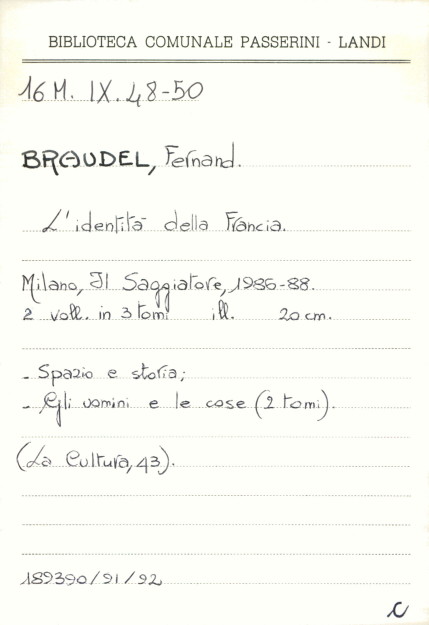 BIBLIOTECA COMUNALE PASSERINI - LANDI
16 M. IX. 48-50
BRAUDEL, Fernand.
L'identità della Francia.
Milano, Il Saggiatore, 1986-88.
2 voll. in 3 tomi ill. 20 cm.
- Spazio e storia;
- Gli uomini e le cose (2 tomi).
(La Cultura, 43).
189390/91/92
C